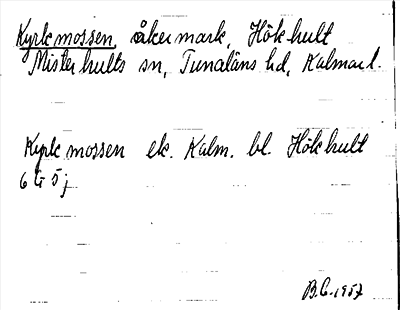 Kyrkmossen, åkermark, Hökhult
Misterhults sn, Tunaläns hd, Kalmar l.
Kyrkmossen ek. Kalm. bl. Hökhult
6 G 5 j
B.C. 1957